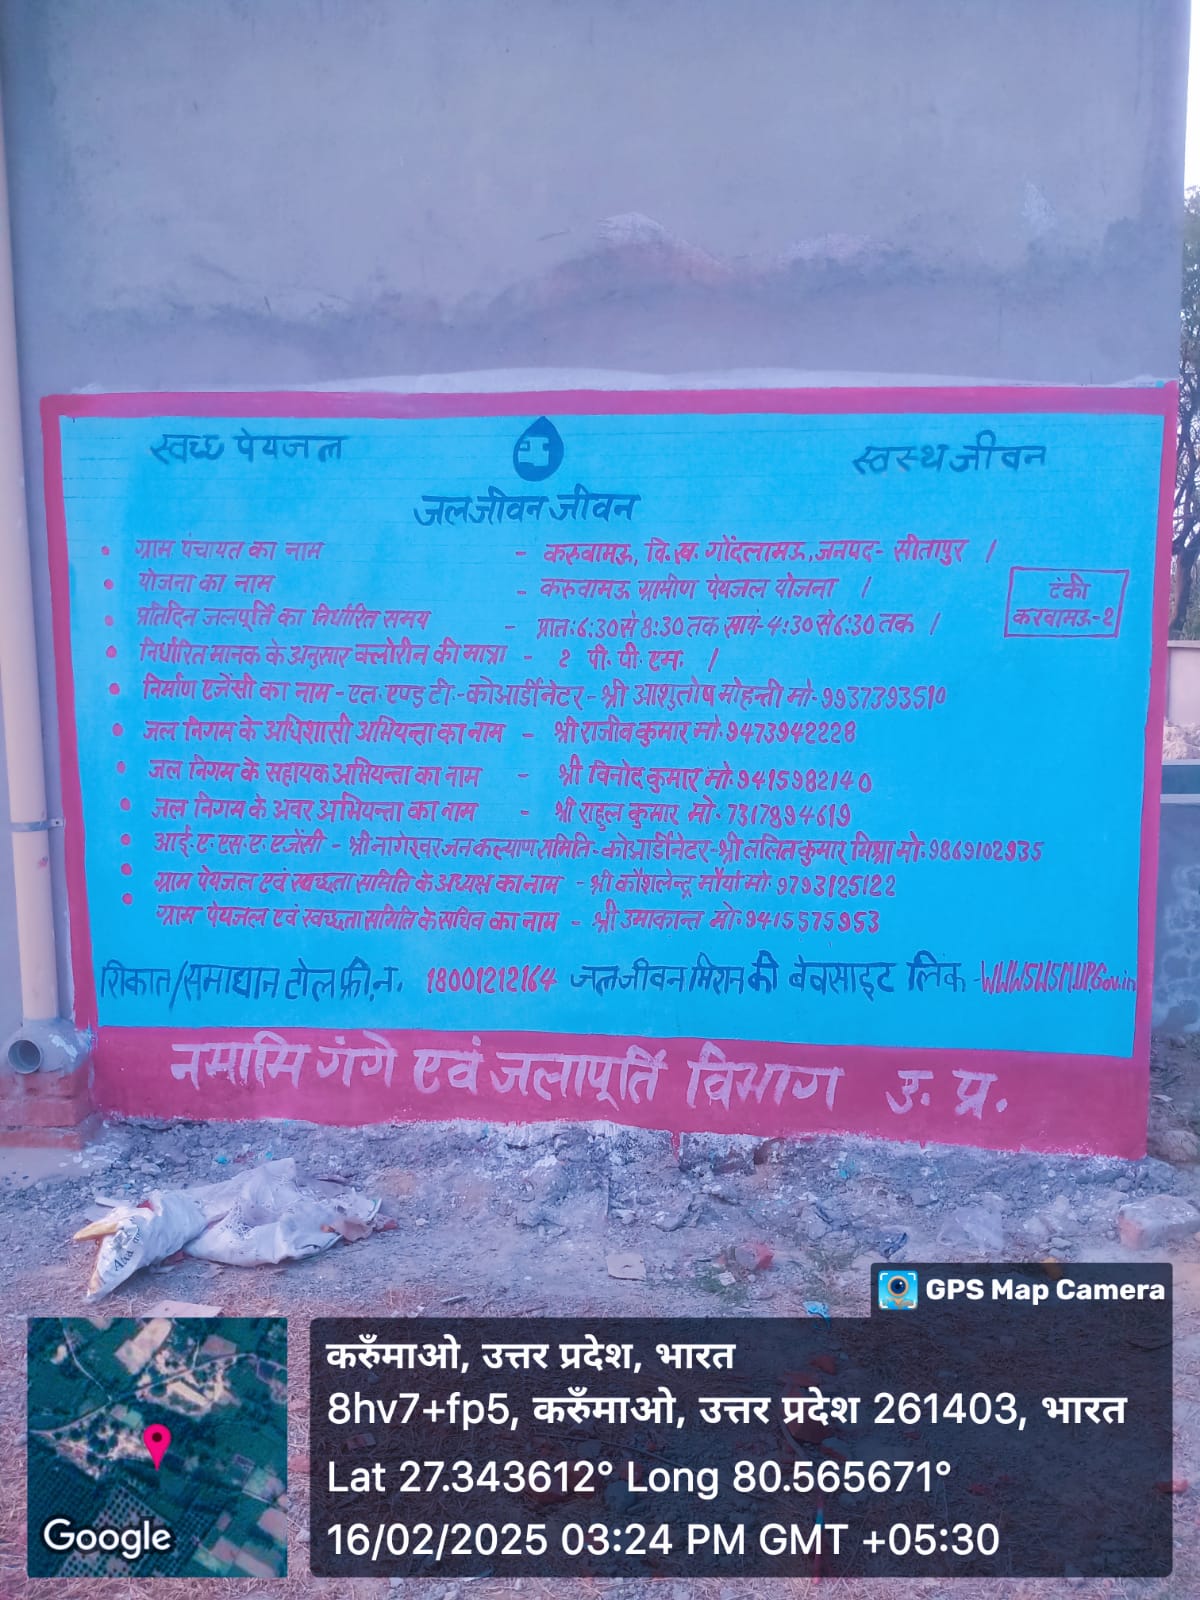 स्वच्छ पेयजल
स्वस्थ जीवन
जल जीवन जीवन
ग्राम पंचायत का नाम - करुवामऊ, वि.ख. गोंदलामऊ, जनपद- सीतापुर ।
योजना का नाम - करुवामऊ ग्रामीण पेयजल योजना ।
टंकी
करवामऊ-2
प्रतिदिन जलपूर्ति का निर्धारित समय - प्रातः 6:30 से 8:30 तक सायं-4:30 से 6:30 तक ।
निर्धारित मानक के अनुसार क्लोरीन की मात्रा - 2 पी. पी. एम. ।
निर्माण एजेंसी का नाम - एल. एण्ड टी.- कोआर्डीनेटर - श्री आशुतोष मोहन्ती मो. 9937393510
जल निगम के अधिशासी अभियन्ता का नाम - श्री राजीव कुमार मो. 9473942228
जल निगम के सहायक अभियन्ता का नाम - श्री विनोद कुमार मो. 9415982140
जल निगम के अवर अभियन्ता का नाम - श्री राहुल कुमार मो. 7317894619
आई. ए. एस. ए. एजेंसी - श्री नागेश्वर जन कल्याण समिति - कोआर्डीनेटर - श्री ललित कुमार मिश्रा मो. 9869102935
ग्राम पेयजल एवं स्वच्छता समिति के अध्यक्ष का नाम - श्री कौशलेन्द्र मौर्या मो. 9793125122
ग्राम पेयजल एवं स्वच्छता समिति के सचिव का नाम - श्री उमाकान्त मो. 9415575953
शिकात/समाधान टोल फ्री. न. 18001212164 जल जीवन मिशन की वेबसाइट लिंक - WWWSWSM.UP.Gov.in
नमामि गंगे एवं जलापूर्ति विभाग उ. प्र.
GPS Map Camera
करुँमाओ, उत्तर प्रदेश, भारत
8hv7+fp5, करुँमाओ, उत्तर प्रदेश 261403, भारत
Lat 27.343612° Long 80.565671°
16/02/2025 03:24 PM GMT +05:30
Google